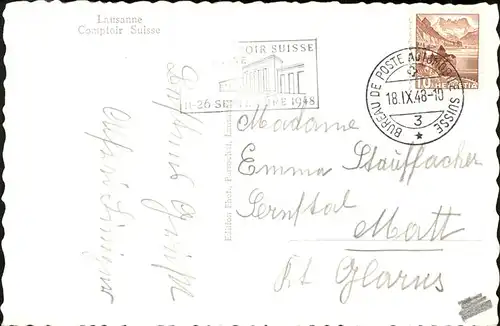 Lausanne
Comptoir Suisse
OIR SUISSE
11-26 SEPTEMBRE 1948
BUREAU DE POSTE AUTOMOBILE SUISSE
18.IX.48-10
3
10 HELVETIA
Madame
Emma Stauffacher
Sernftal
Matt
Kt. Glarus
Edition Phot. Perrochet, Lausanne